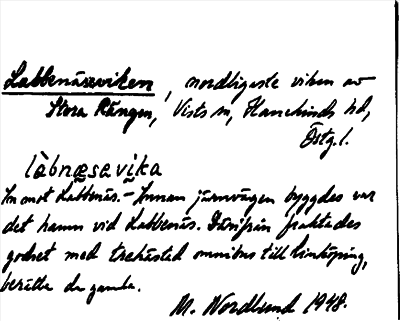 Labbenäsviken, nordligaste viken av
Stora Rängen, Vists sn, Hanekinds hd,
Östg.l.
làbnæsavika
In mot Labbenäs. – Innan järnvägen byggdes var
det hamn vid Labbenäs. Därifrån fraktades
godset med trehästad omnibus till Linköping,
berätta de gamla.
M. Nordlund 1948.